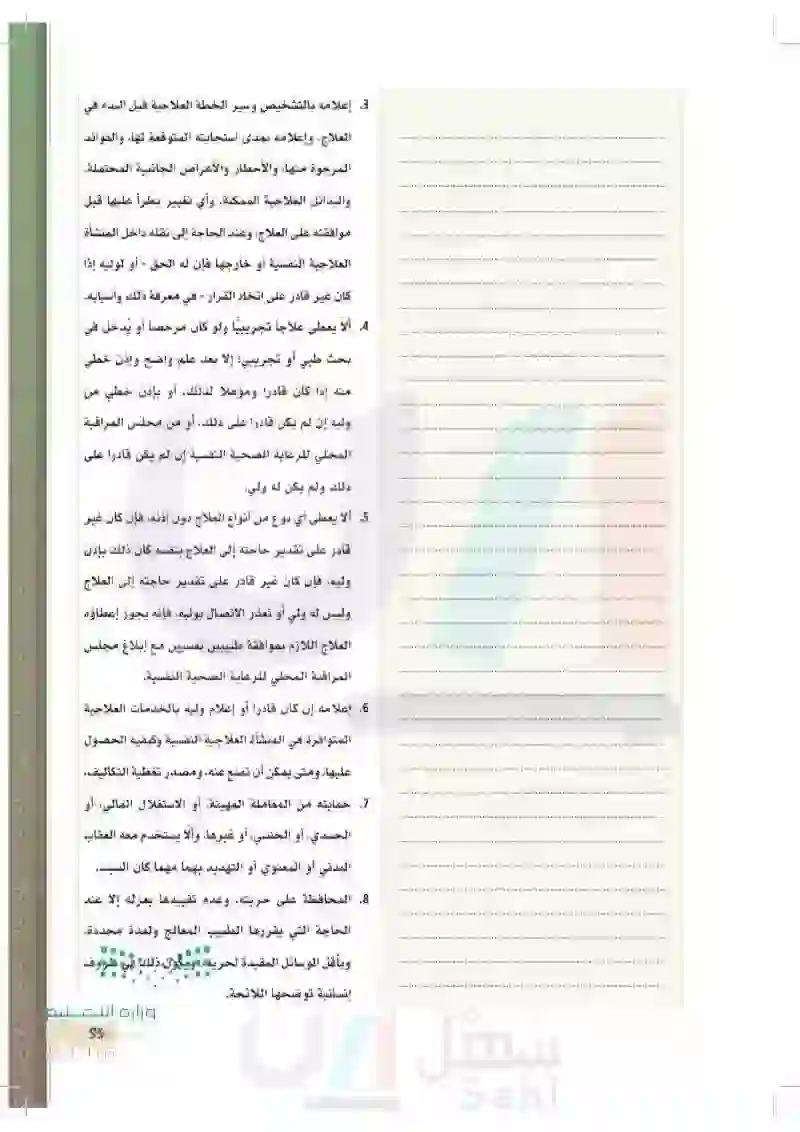 3. إعلامه بالتشخيص وسير الخطة العلاجية قبل البدء في
العلاج، وإعلامه بمدى استجابته المتوقعة لها، والفوائد
المرجوة منها، والأخطار والأعراض الجانبية المحتملة،
والبدائل العلاجية الممكنة، وأي تغيير يطرأ عليها قبل
موافقته على العلاج، وعند الحاجة إلى نقله داخل المنشأة
العلاجية النفسية أو خارجها فإن له الحق - أو لوليه إذا
كان غير قادر على اتخاذ القرار - في معرفة ذلك وأسبابه.
4. ألا يعطى علاجاً تجريبيًّا ولو كان مرخصاً أو يُدخل في
بحث طبي أو تجريبي؛ إلا بعد علم واضح وإذن خطي
منه إذا كان قادراً ومؤهلاً لذلك، أو بإذن خطي من
وليه إن لم يكن قادراً على ذلك، أو من مجلس المراقبة
المحلي للرعاية الصحية النفسية إن لم يكن قادراً على
ذلك ولم يكن له ولي.
5. ألا يعطى أي نوع من أنواع العلاج دون إذنه، فإن كان غير
قادر على تقدير حاجته إلى العلاج بنفسه كان ذلك بإذن
وليه، فإن كان غير قادر على تقدير حاجته إلى العلاج
وليس له ولي أو تعذر الاتصال بوليه، فإنه يجوز إعطاؤه
العلاج اللازم بموافقة طبيبين نفسيين مع إبلاغ مجلس
المراقبة المحلي للرعاية الصحية النفسية.
6. إعلامه إن كان قادراً أو إعلام وليه بالخدمات العلاجية
المتوافرة في المنشأة العلاجية النفسية وكيفية الحصول
عليها، ومتى يمكن أن تمنع عنه، ومصدر تغطية التكاليف.
7. حمايته من المعاملة المهينة، أو الاستغلال المالي، أو
الجسدي، أو الجنسي، أو غيرها، وألا يستخدم معه العقاب
البدني أو المعنوي أو التهديد بهما مهما كان السبب.
8. المحافظة على حريته، وعدم تقييدها بعزله إلا عند
الحاجة التي يقررها الطبيب المعالج ولمدة محددة،
وبأقل الوسائل المقيدة لحريته، ويكون ذلك في ظروف
إنسانية توضحها اللائحة.
وزارة التعليم
55
سهل
Sahl